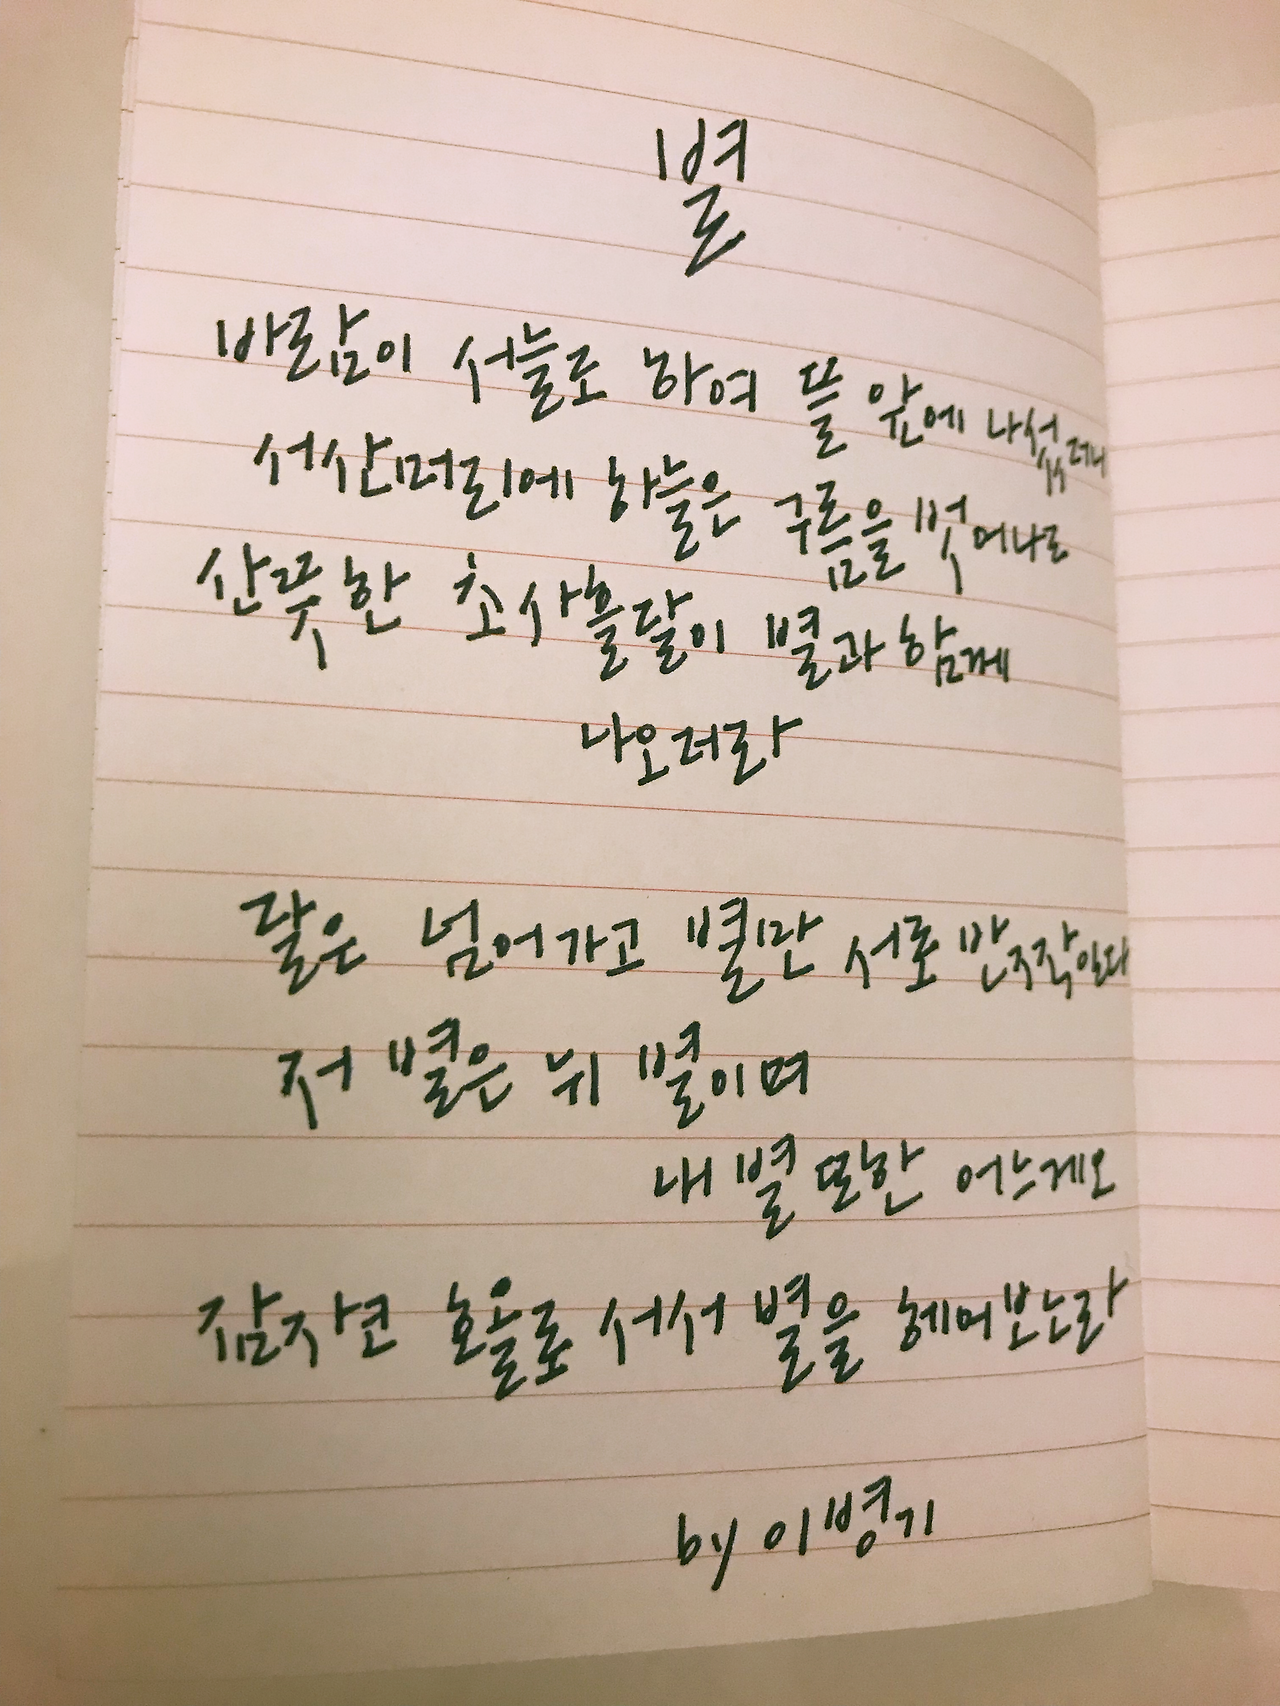 별
바람이 서늘로 하여 뜰 앞에 나섰더니
서산머리에 하늘은 구름을 벗어나로
산뜻한 초사흘달이 별과 함께
나오더라
달은 넘어가고 별만 서로 반짝인다
저 별은 뉘 별이며
내 별 또한 어느게오
잠자코 호올로 서서 별을 헤어보노라
by 이병기